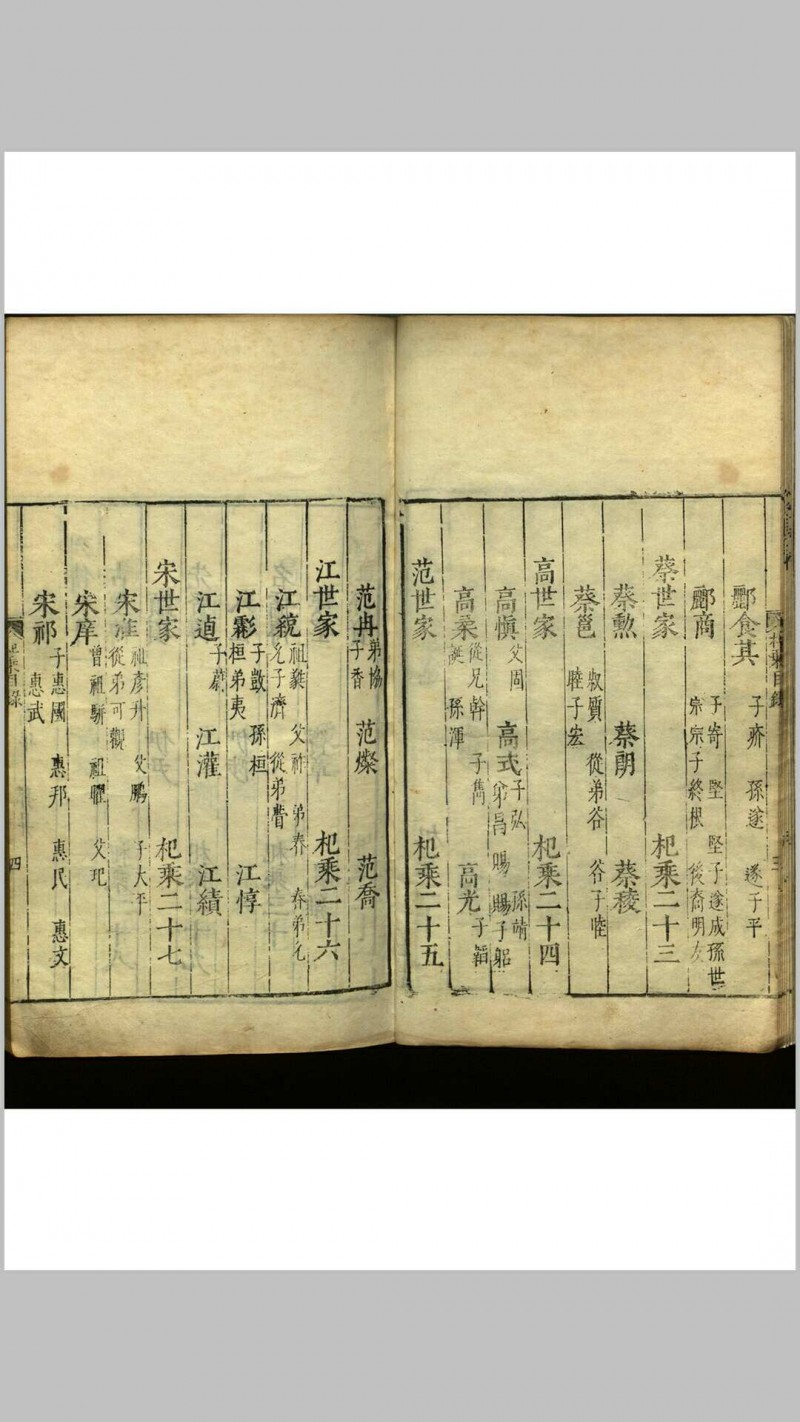 酈食其 子疥 孫遂 遂子平
酈商 子寄 堅 堅子遂成孫世宗宗子終根 後裔明友
蔡世家 杞乘二十三
蔡勲 蔡朗 蔡稜
蔡邕 叔質 從弟谷 谷子睦 睦子宏
高世家 杞乘二十四
高慎 父固 高式 子弘 孫靖 弟昌 賜 賜子躬
高柔 從兄幹 子雋 誕 孫渾 高光 子韜
范世家 杞乘二十五
范冉 弟協 子香 范燦 范喬
江世家 杞乘二十六
江統 祖蕤 父祚 弟春 春弟允 允子濟 從弟瞢
江霦 子敳 孫桓 桓弟夷 江惇
江逌 子蔚 江灌 江績
宋世家 杞乘二十七
宋準 祖彥升 父鵬 子大平 從弟可觀
宋庠 曾祖駢 祖耀 父玘
宋祁 子惠國 惠邦 惠民 惠文 惠武
四